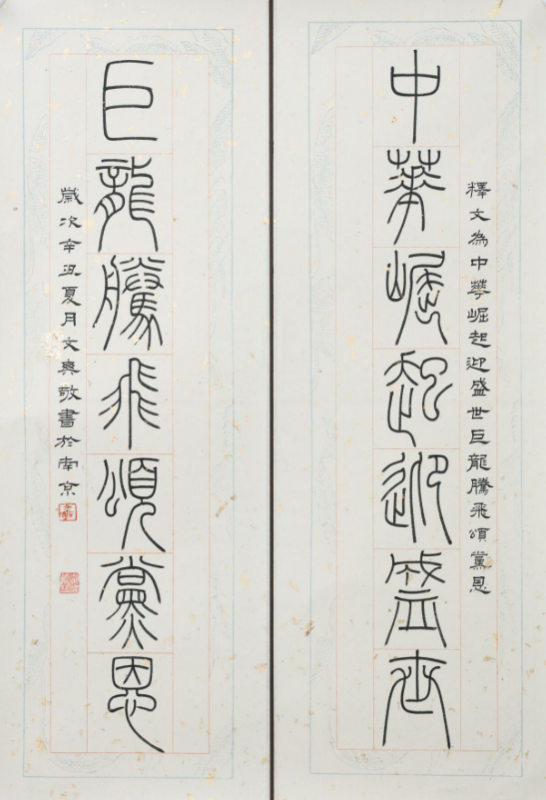 釋文為中華崛起迎盛世巨龍騰飛頌黨恩
中華崛起迎盛世
巨龍騰飛頌黨恩
歲次辛丑夏月文典敬書於南京